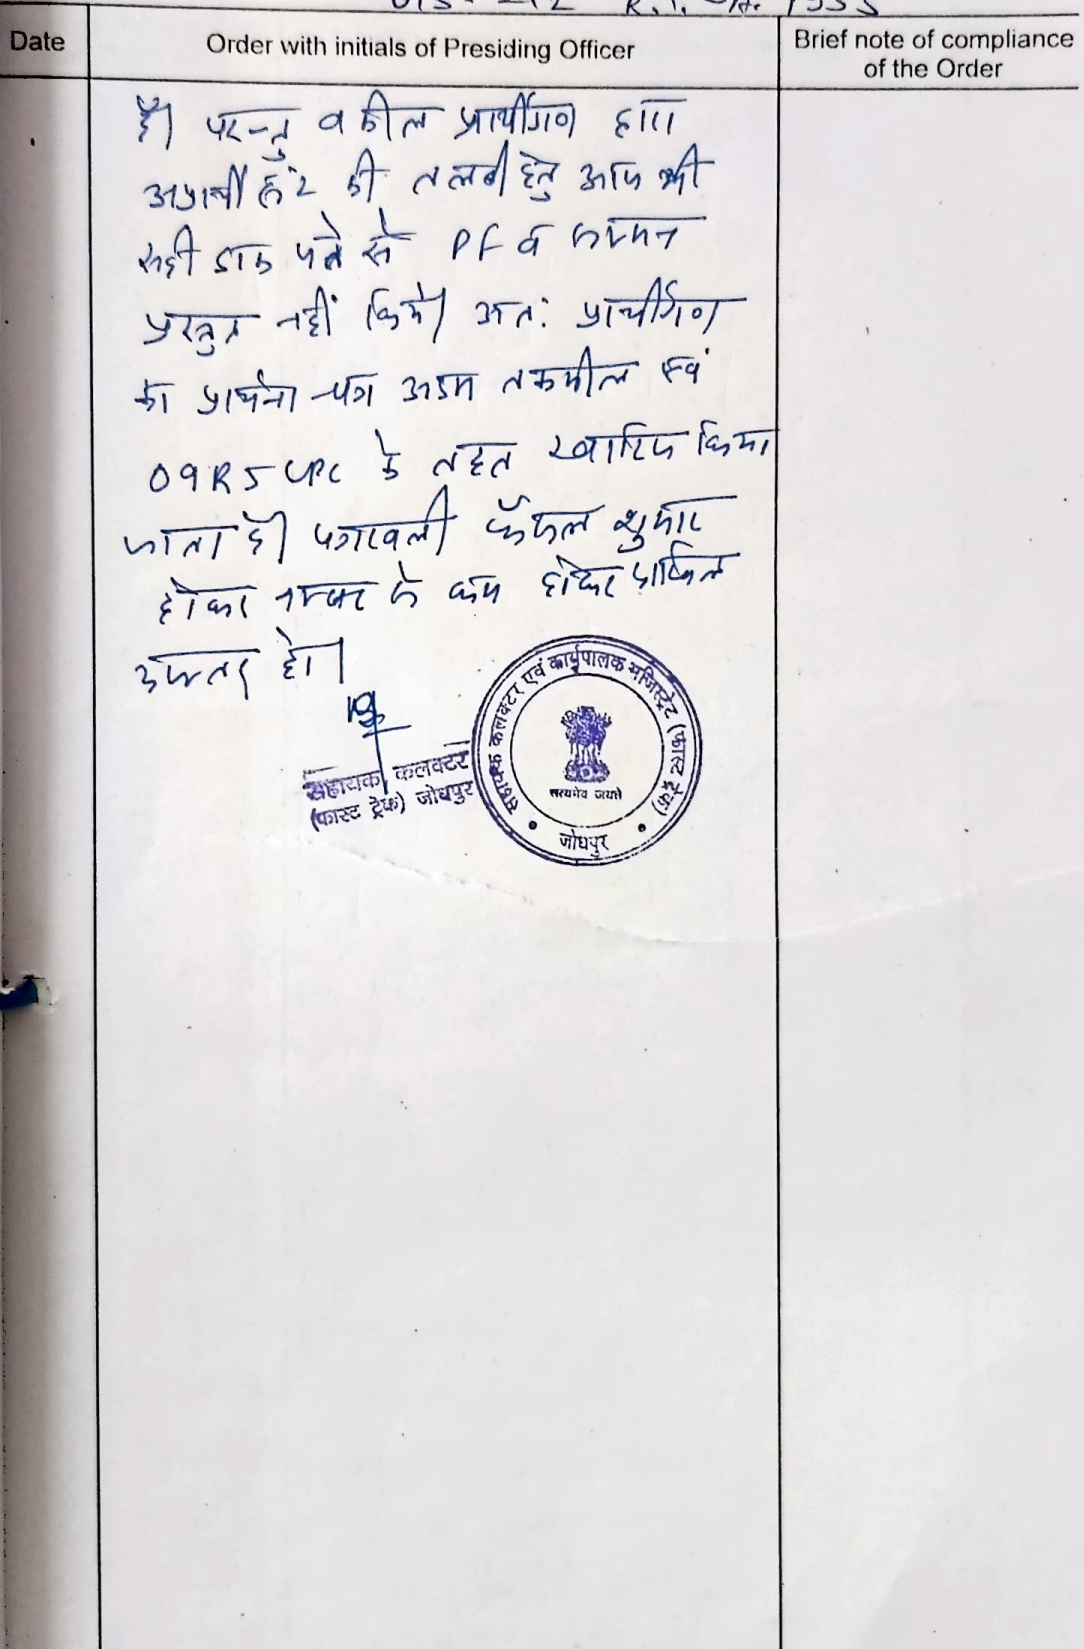 U/S - 212 R.T. Act. 1955
Date
Order with initials of Presiding Officer
Brief note of compliance
of the Order
है। परन्तु वकील प्रार्थीगण द्वारा
अप्रार्थी सं. 2 की तलबी हेतु आज भी
सही डाक पते से PF व सम्मन
प्रस्तुत नहीं किये। अतः प्रार्थीगण
का प्रार्थना-पत्र अदम तकमील एवं
O9R5 CPC के तहत खारिज किया
जाता है। पत्रावली फैसल शुमार
होकर नम्बर से कम होकर दाखिल
दफ्तर हो।
सहायक कलक्टर
(फास्ट ट्रेक) जोधपुर
सहायक कलक्टर एवं कार्यपालक मजिस्ट्रेट (फास्ट ट्रेक)
सत्यमेव जयते
जोधपुर